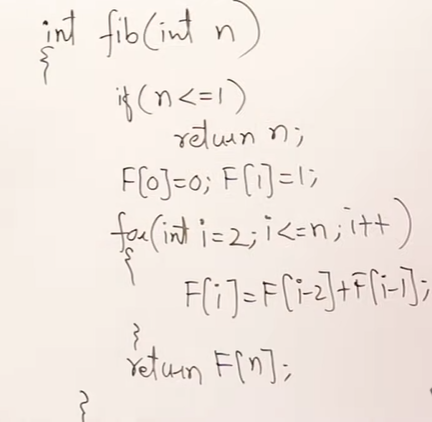 int fib(int n)
{
if(n<=1)
return n;
F[0]=0; F[1]=1;
for(int i=2; i<=n; i++)
{
F[i]=F[i-2]+F[i-1];
}
return F[n];
}